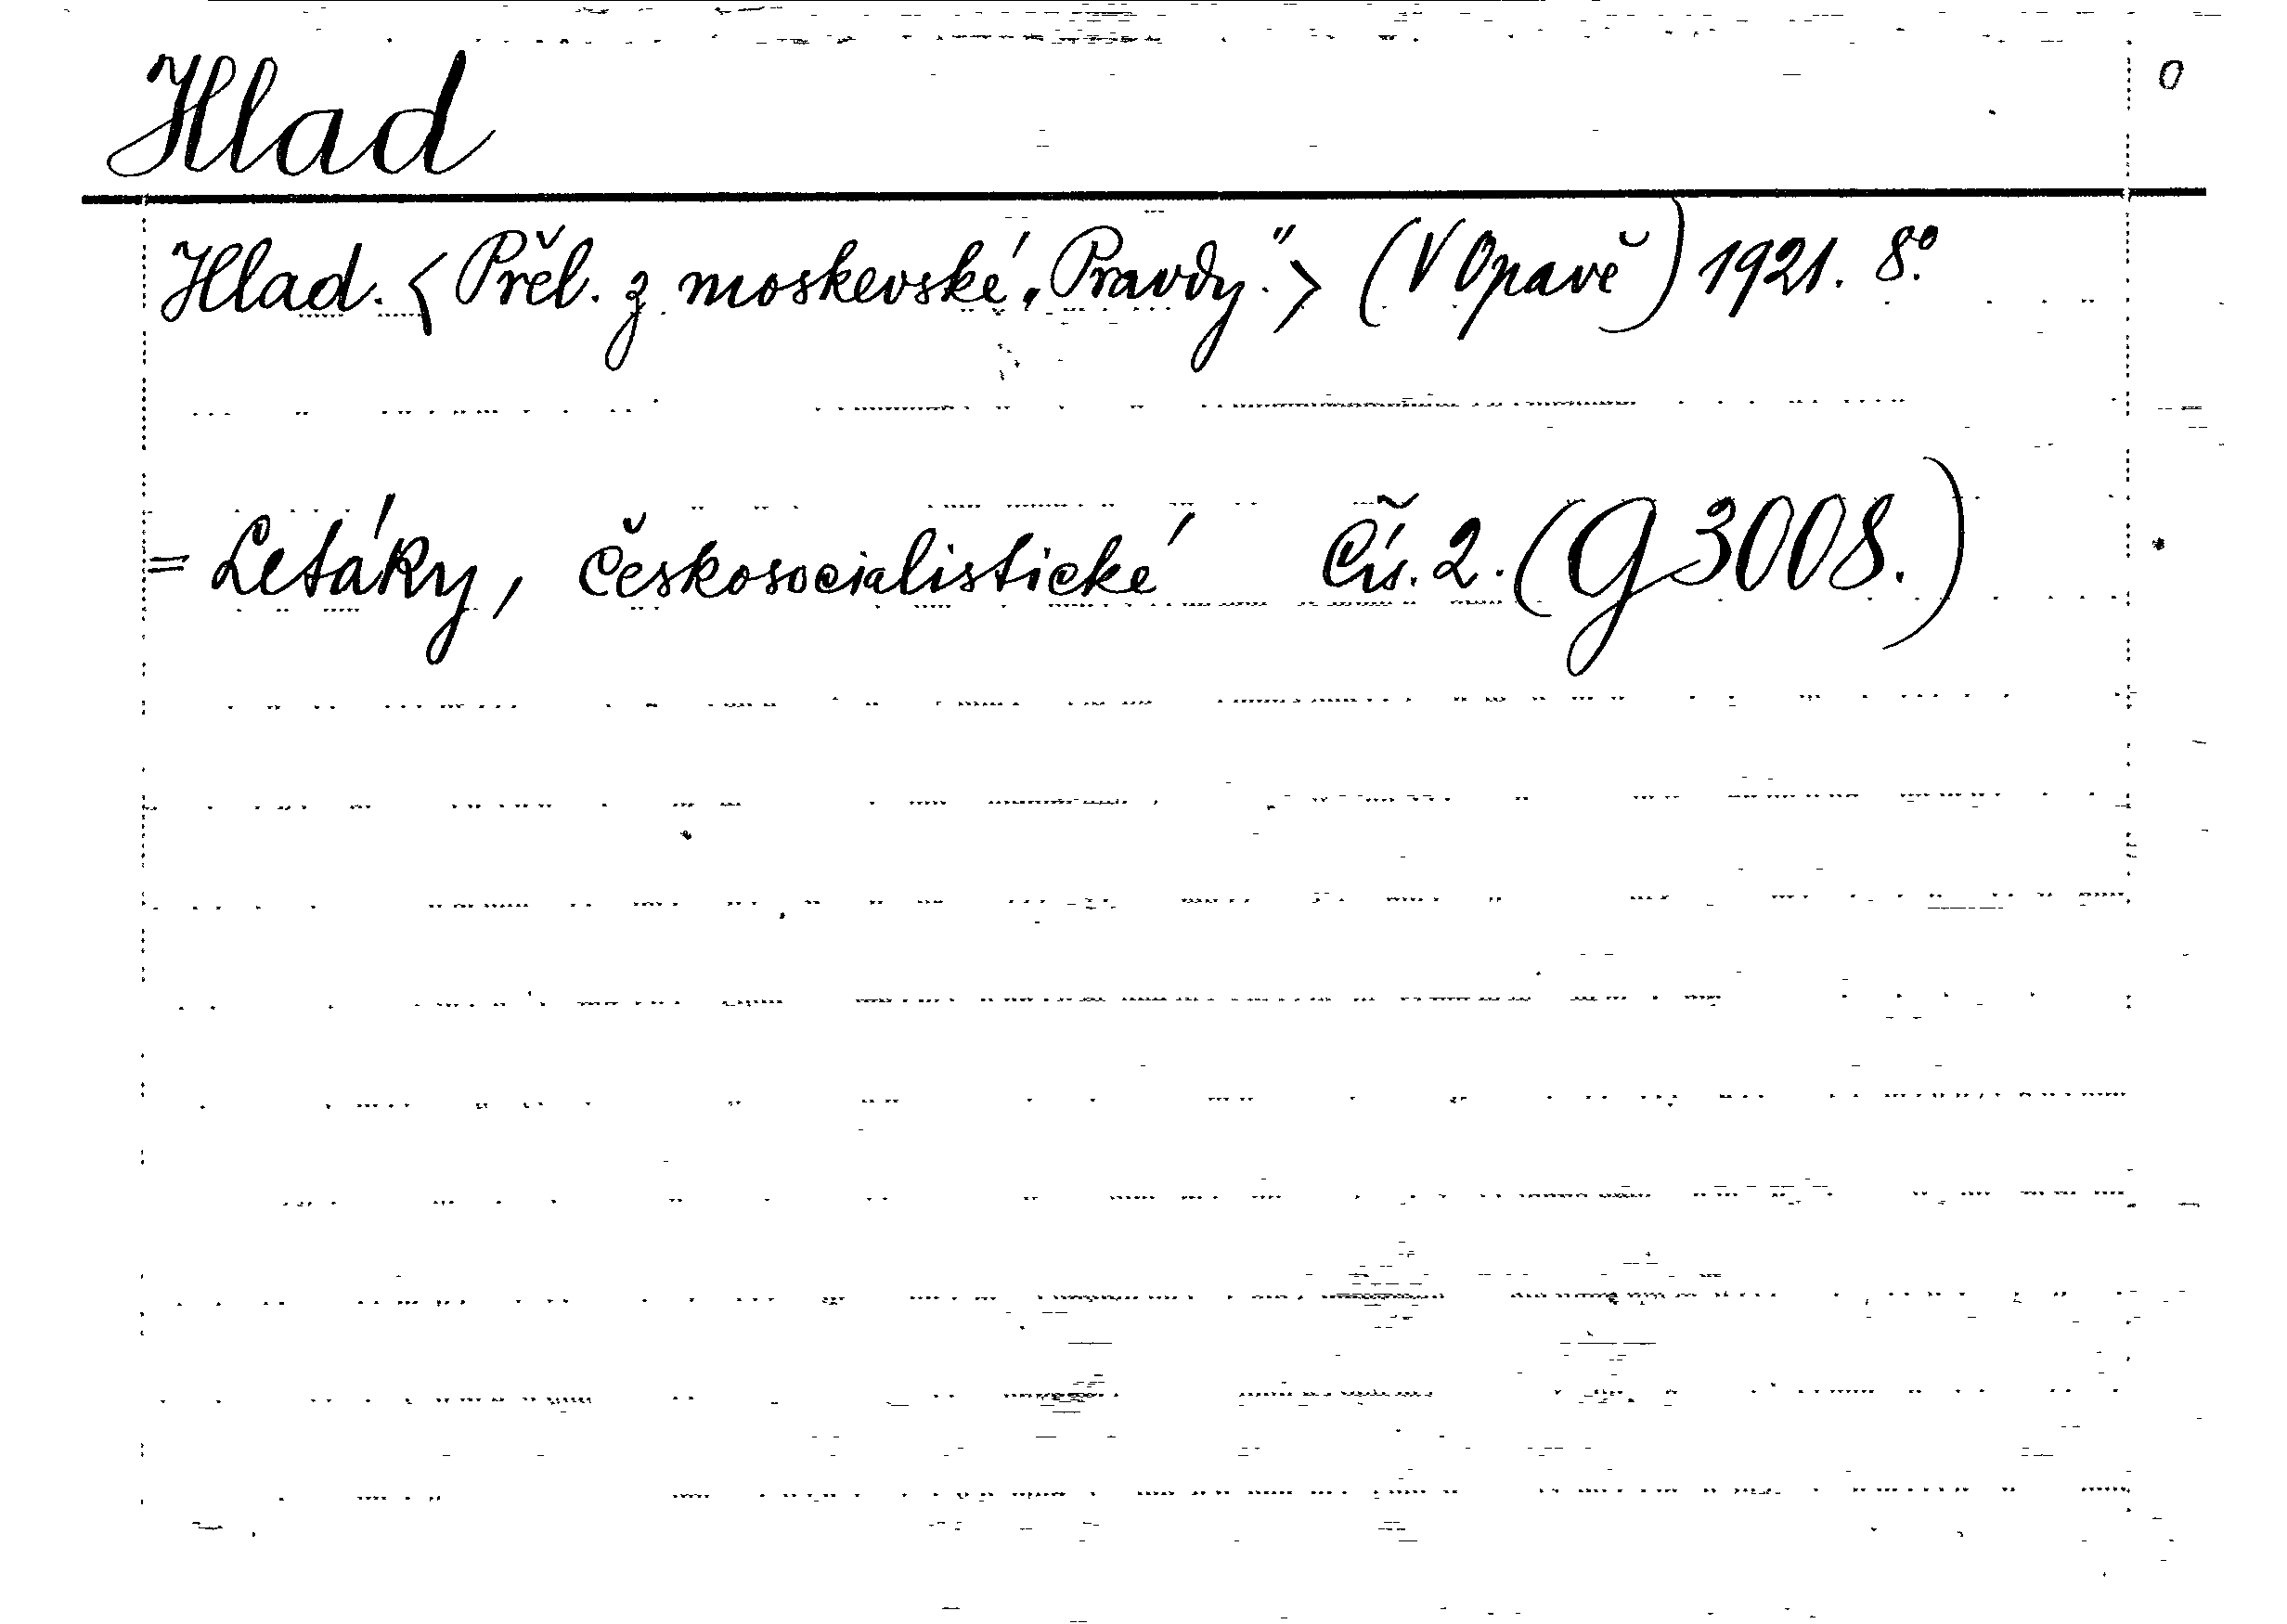 Hlad
0
Hlad. < Přel. z moskevské „Pravdy.“ > (V Opavě) 1921. 8º.
= Letáky, českosocialistické Čís. 2. (G 3008.)